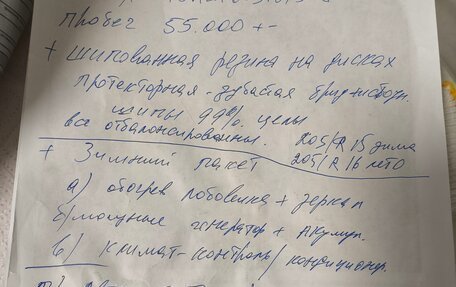 пробег 55.000 +-
+ шипованная резина на дисках
протекторная - зубастая
шипы 99% целы
все отбалонсированны. 205/R 15 зима
+ Зимний пакет 205/R 16 лето
а) обогрев лобовика + зеркал
б) мощные генератор + Акумул.
в) климат-контроль/кондиционер.